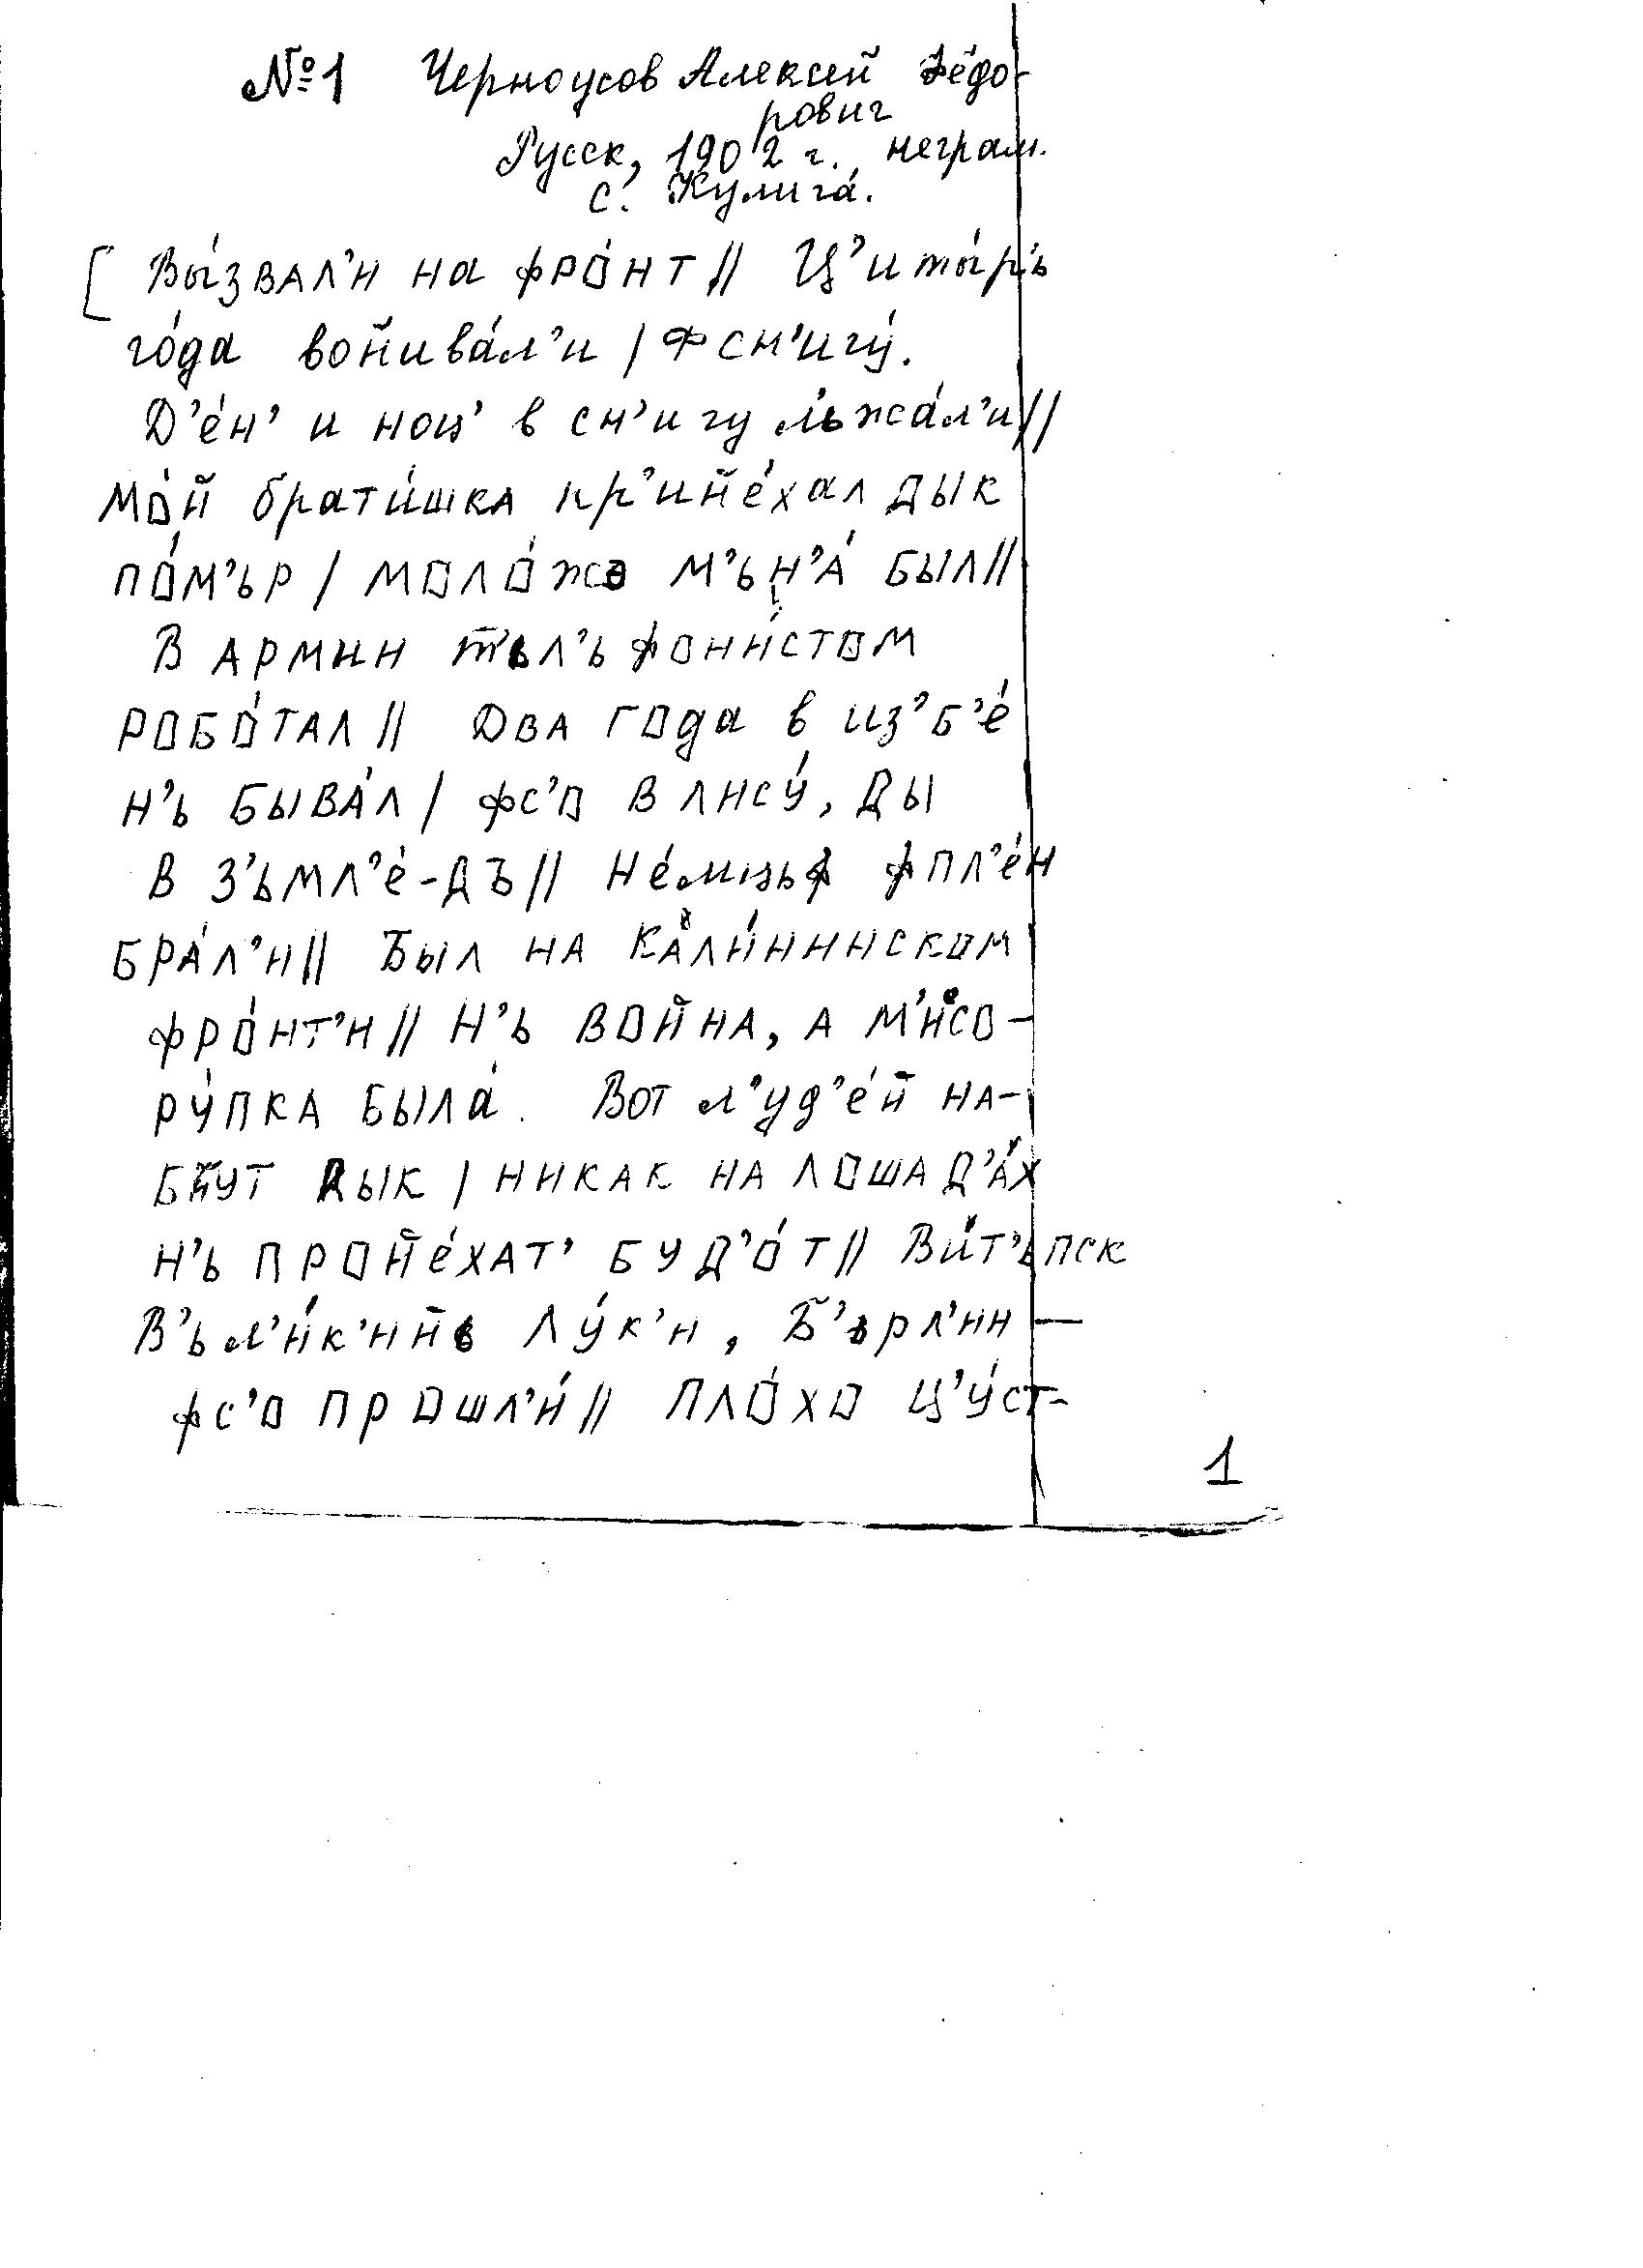 №1 Черноусов Алексей Фёдо-
рович
Русск, 1902 г. неграм.
с. Кулига́.
[ Вы́звал’и на фро́нт // Ц’иты́р’ь
го́да войива́л’и / ф сн’игу́.
Д’е́н’ и ноц’ в сн’игу л’ьжа́л’и //
Мо́й брати́шка пр’ийе́хал дык
по́м’ьр / моло́жэ м’ьн’а́ был //
В армии т’ьл’ьфони́стом
робо́тал // Два года в из’б’е́
н’ь быва́л / фс’о в лису́, ды
в з’ьмл’е́-дъ // Не́мцьф ф пл’е́н
бра́л’и // Был на Кали́нинском
фро́нт’и // Н’ь война, а м’исо-
ру́пка была́. Вот л’уд’е́й на-
бйут дык / никак на лошад’а́х
н’ь пройе́хат’ буд’о́т // Ви́т’ьпск
В’ьл’и́к’ийь Лу́к’и, Б’ьрл’ин —
фс’о прошл’и́ // Пло́хо ц’у́ст-
1